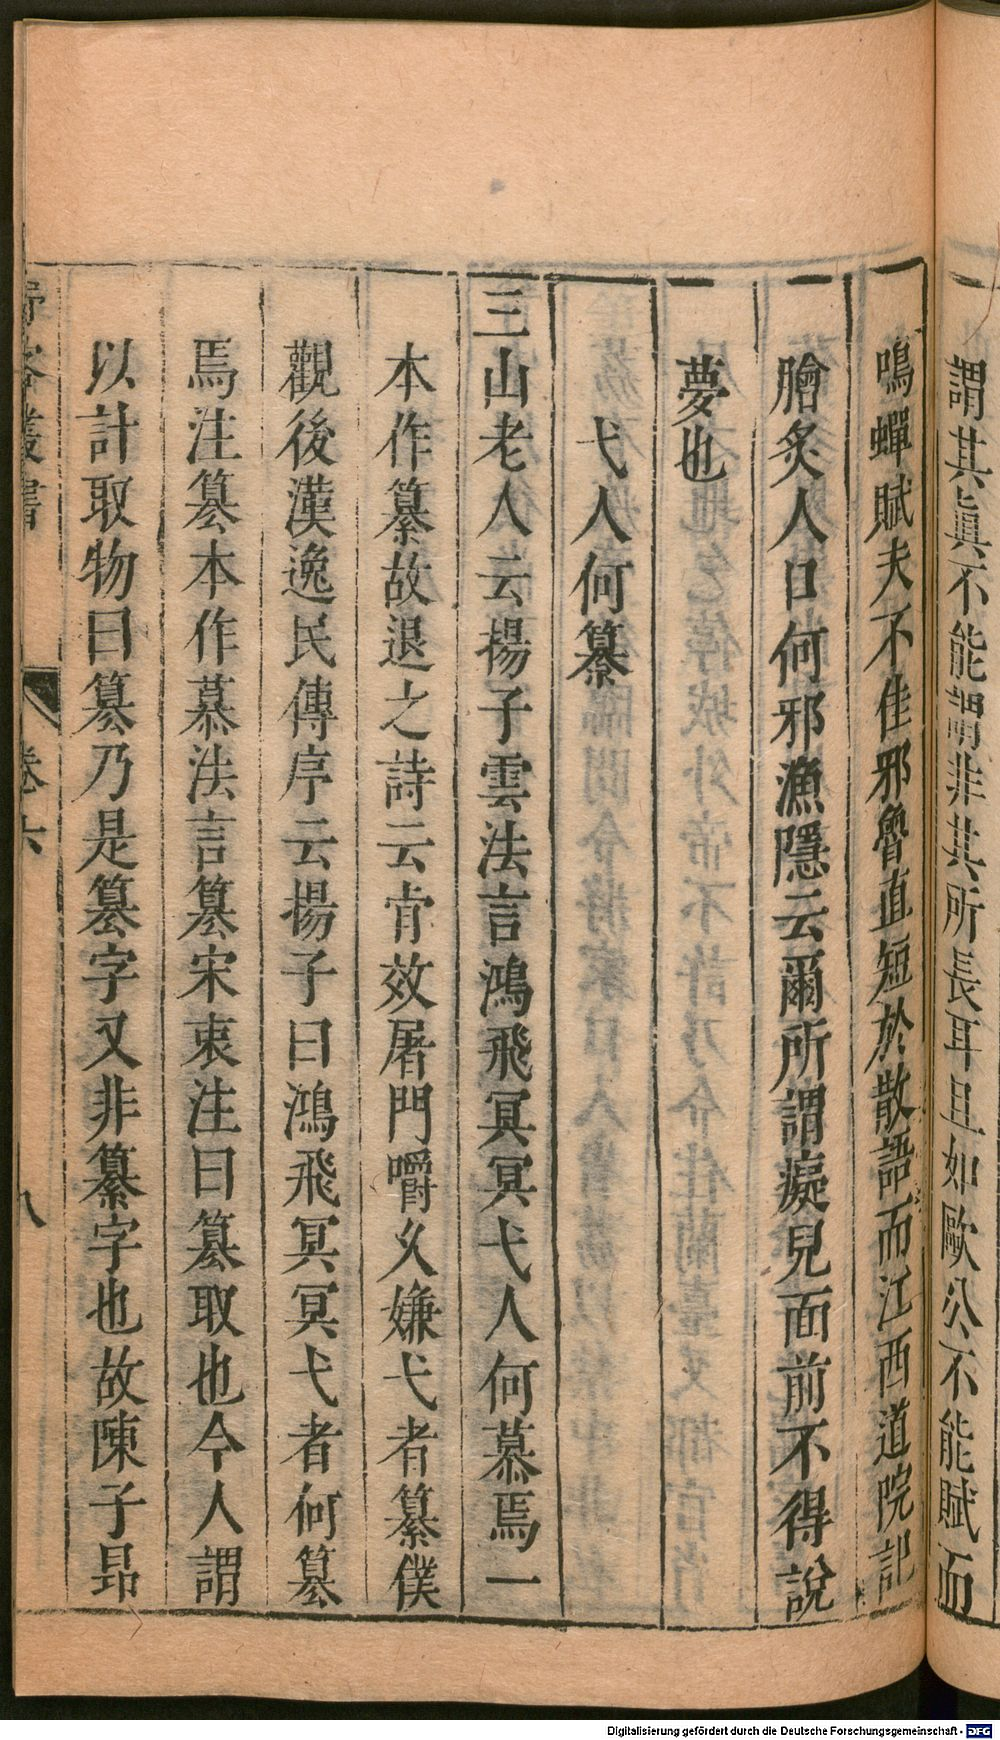 謂其眞不能謂非其所長耳且如歐公不能賦而
鳴蟬賦夫不佳邪魯直短於散語而江西道院記
膾炙人口何邪漁隱云爾所謂癡兒面前不得說
夢也
弋人何纂
三山老人云揚子雲法言鴻飛冥冥弋人何慕焉一
本作纂故退之詩云肯效屠門嚼久嫌弋者纂僕
觀後漢逸民傳序云揚子曰鴻飛冥冥弋者何篡
焉注篡本作慕法言篡宋衷注曰篡取也今人謂
以計取物曰篡乃是篡字又非纂字也故陳子昻
叢書 卷六 八
Digitalisierung gefördert durch die Deutsche Forschungsgemeinschaft - DFG